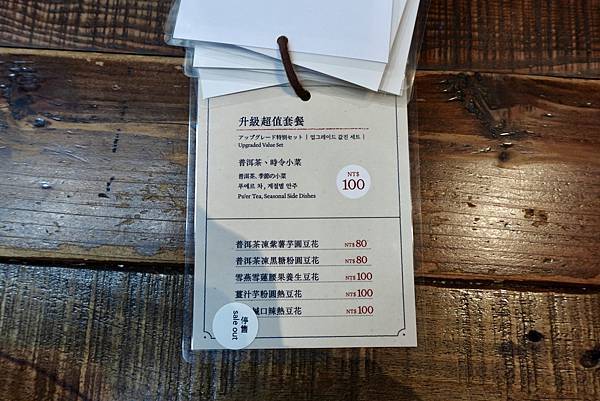 升級超值套餐
アップグレード特別セット | 업그레이드 값진 세트 |
Upgraded Value Set
普洱茶、時令小菜
普洱茶, 季節の小菜
푸에르 차, 계절별 안주
Pu'er Tea, Seasonal Side Dishes
NT$
100
普洱茶凍紫薯芋圓豆花 NT$ 80
普洱茶凍黑糖粉圓豆花 NT$ 80
雪燕雪蓮腰果養生豆花 NT$ 100
薑汁芋粉圓熱豆花 NT$ 100
口辣熱豆花 NT$ 100
停售
sale out